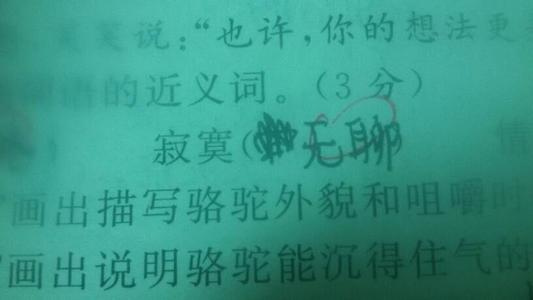 笑笑说：“也许，你的想法更
词语的近义词。（3分）
寂寞（无聊） 情
画出描写骆驼外貌和咀嚼时
画出说明骆驼能沉得住气的